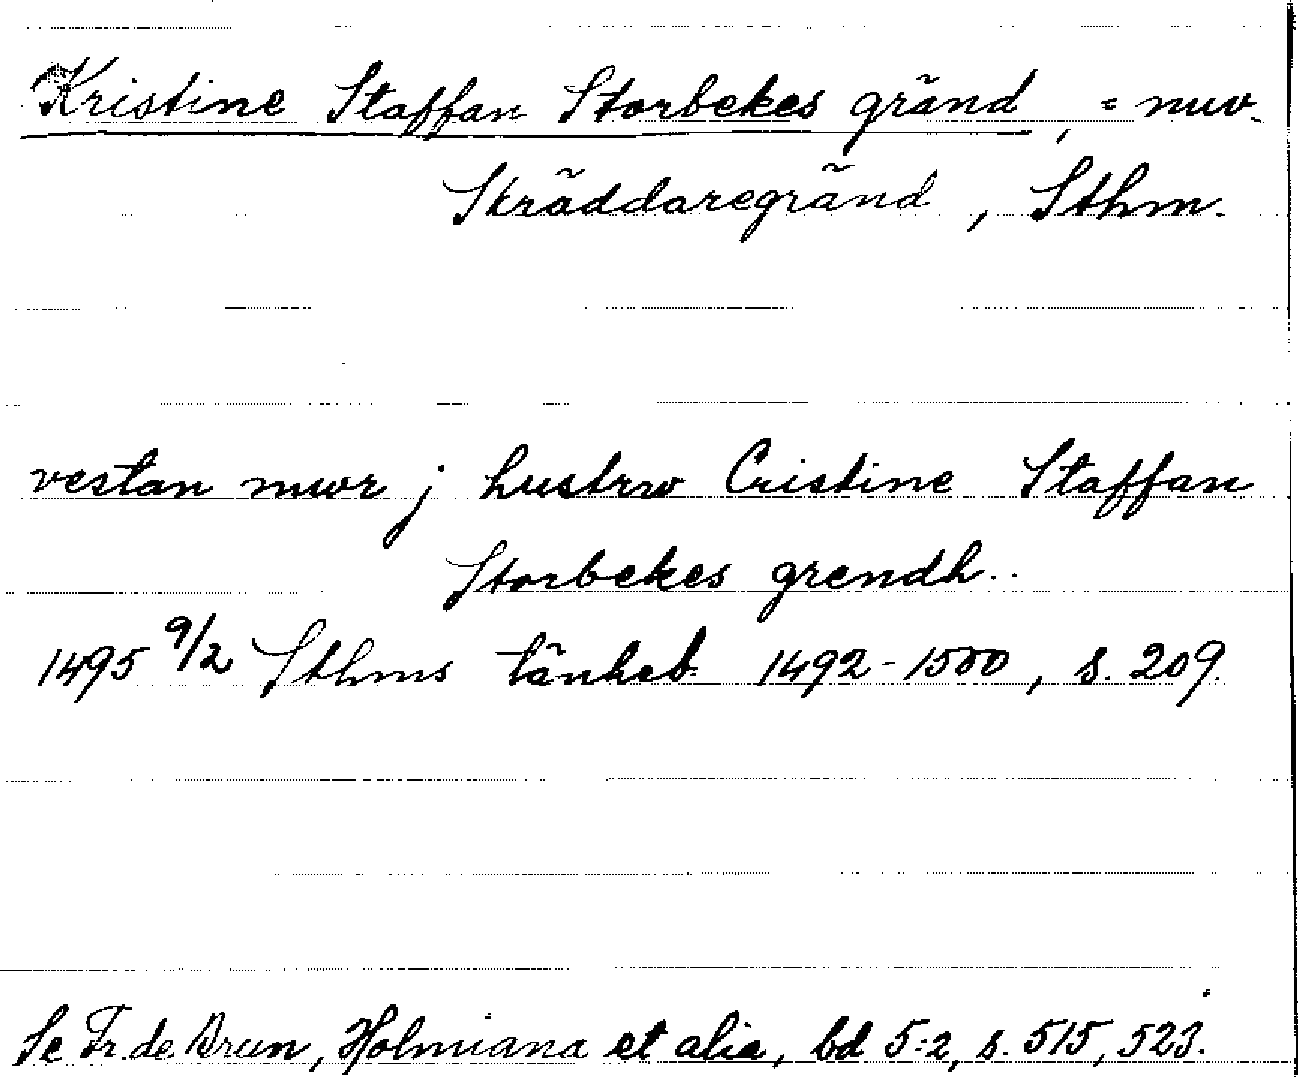 Kristine Staffan Storbekes gränd, = nuv.
Skräddaregränd, Sthm.
vestan mwr j hustrw Cristine Staffan
Storbekes grendh..
1495 9/2 Sthms tänkeb. 1492-1500, s. 209.
Se Fr. de Brun, Holmiana et alia, bd 5:2, s. 515, 523.